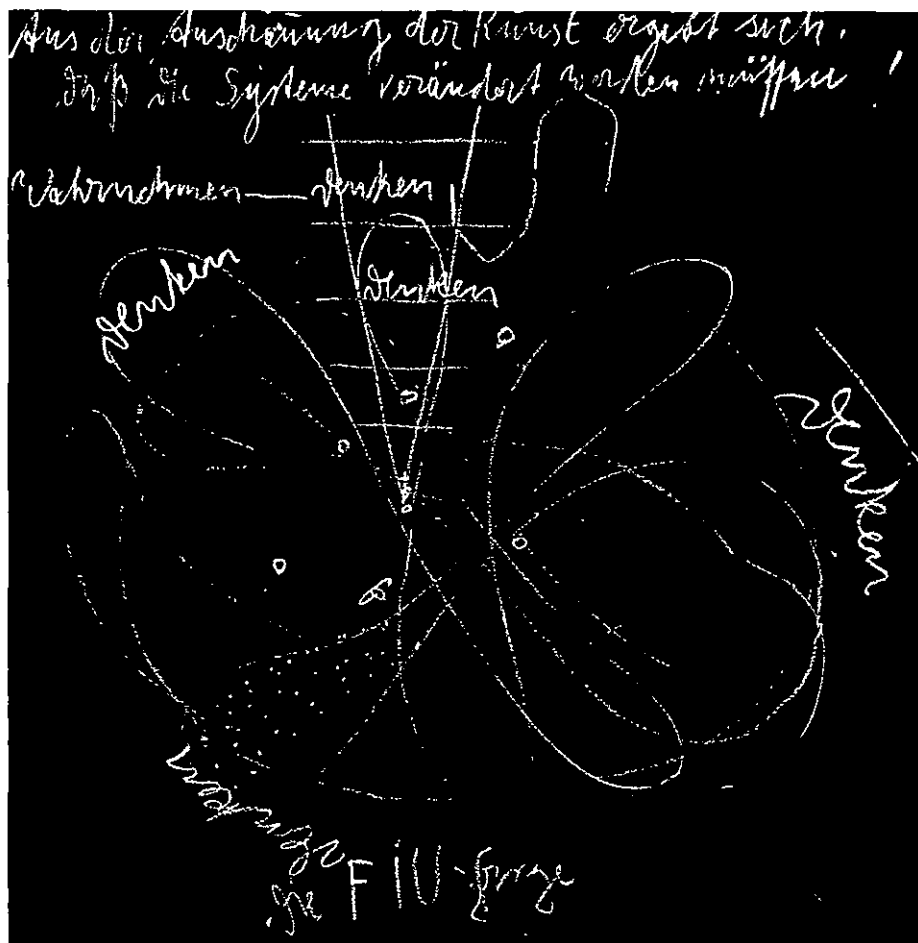 Aus der Anschauung der Kunst ergibt sich.
daß die Systeme verändert werden müssen!
Wahrnehmen — denken
denken
denken
denken
denken
die FIU-frage